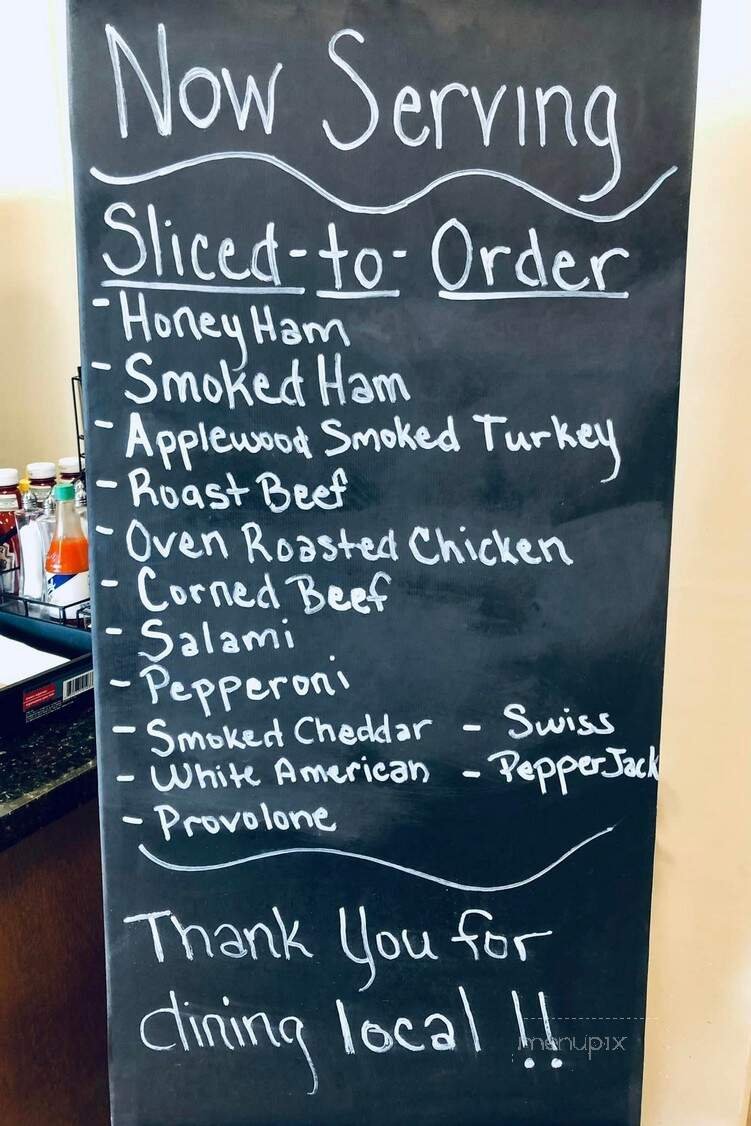 Now Serving
Sliced-to-Order
- Honey Ham
- Smoked Ham
- Applewood Smoked Turkey
- Roast Beef
- Oven Roasted Chicken
- Corned Beef
- Salami
- Pepperoni
- Smoked Cheddar - Swiss
- White American - Pepper Jack
- Provolone
Thank You for
dining local !!
menupix